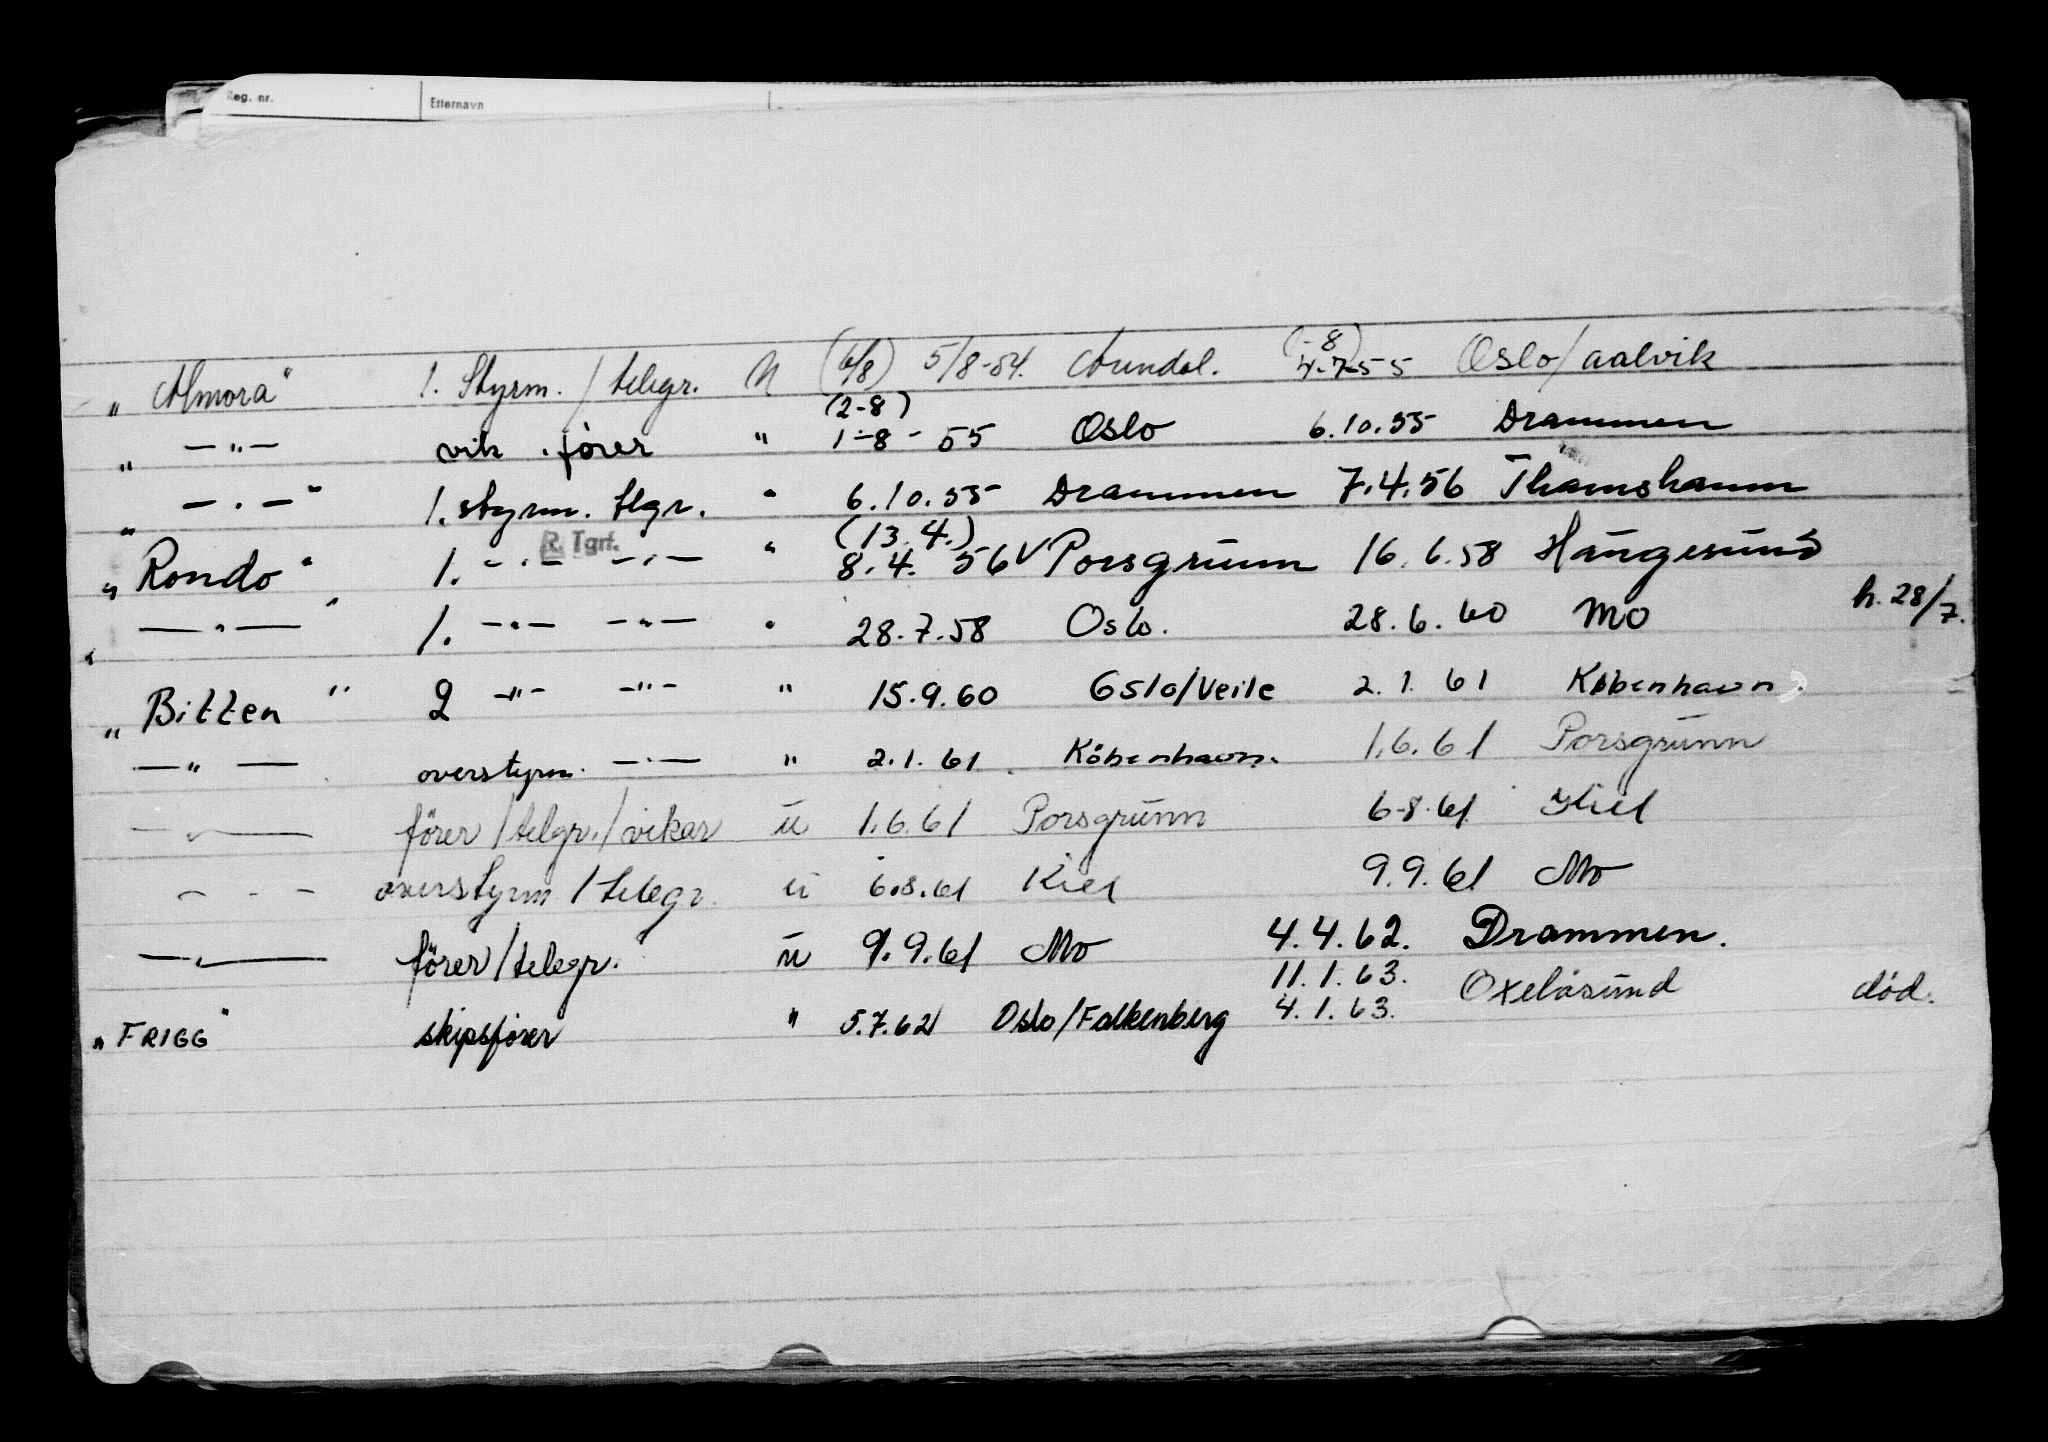 Reg. nr. Etternavn
" Almora" 1. Styrm. / telegr. N (6/8) 5/8-54. Arendal. (1-8) 4.7.55 Oslo/aalvik
" —"— vik. fører " (2-8) 1-8-55 Oslo 6.10.55 Drammen
" —"—" 1. styrm. tlgr. " 6.10.55 Drammen 7.4.56 Thamshamn
R. Tgrf.
" Rondo" 1. —"— —"— " (13.4.) 8.4.56 V Porsgrunn 16.6.58 Haugesund
" —"—" 1. —"— —"— " 28.7.58 Oslo. 28.6.60 MO h. 28/7.
" Bitten " 2 —"— —"— " 15.9.60 Oslo/Veile 2.1.61 København.
—"— overstyrm. —"— " 2.1.61 København. 1.6.61 Porsgrunn
—"— fører/telgr./vikar u 1.6.61 Porsgrunn 6-8.61 Kiel
—"— overstyrm/telegr. u 6.8.61 Kiel 9.9.61 Mo
—"— fører/telegr. u 9.9.61 Mo 4.4.62. Drammen.
"FRIGG" skipsfører " 5.7.62 Oslo/Falkenberg 11.1.63. 4.1.63. Oxeløsund død.